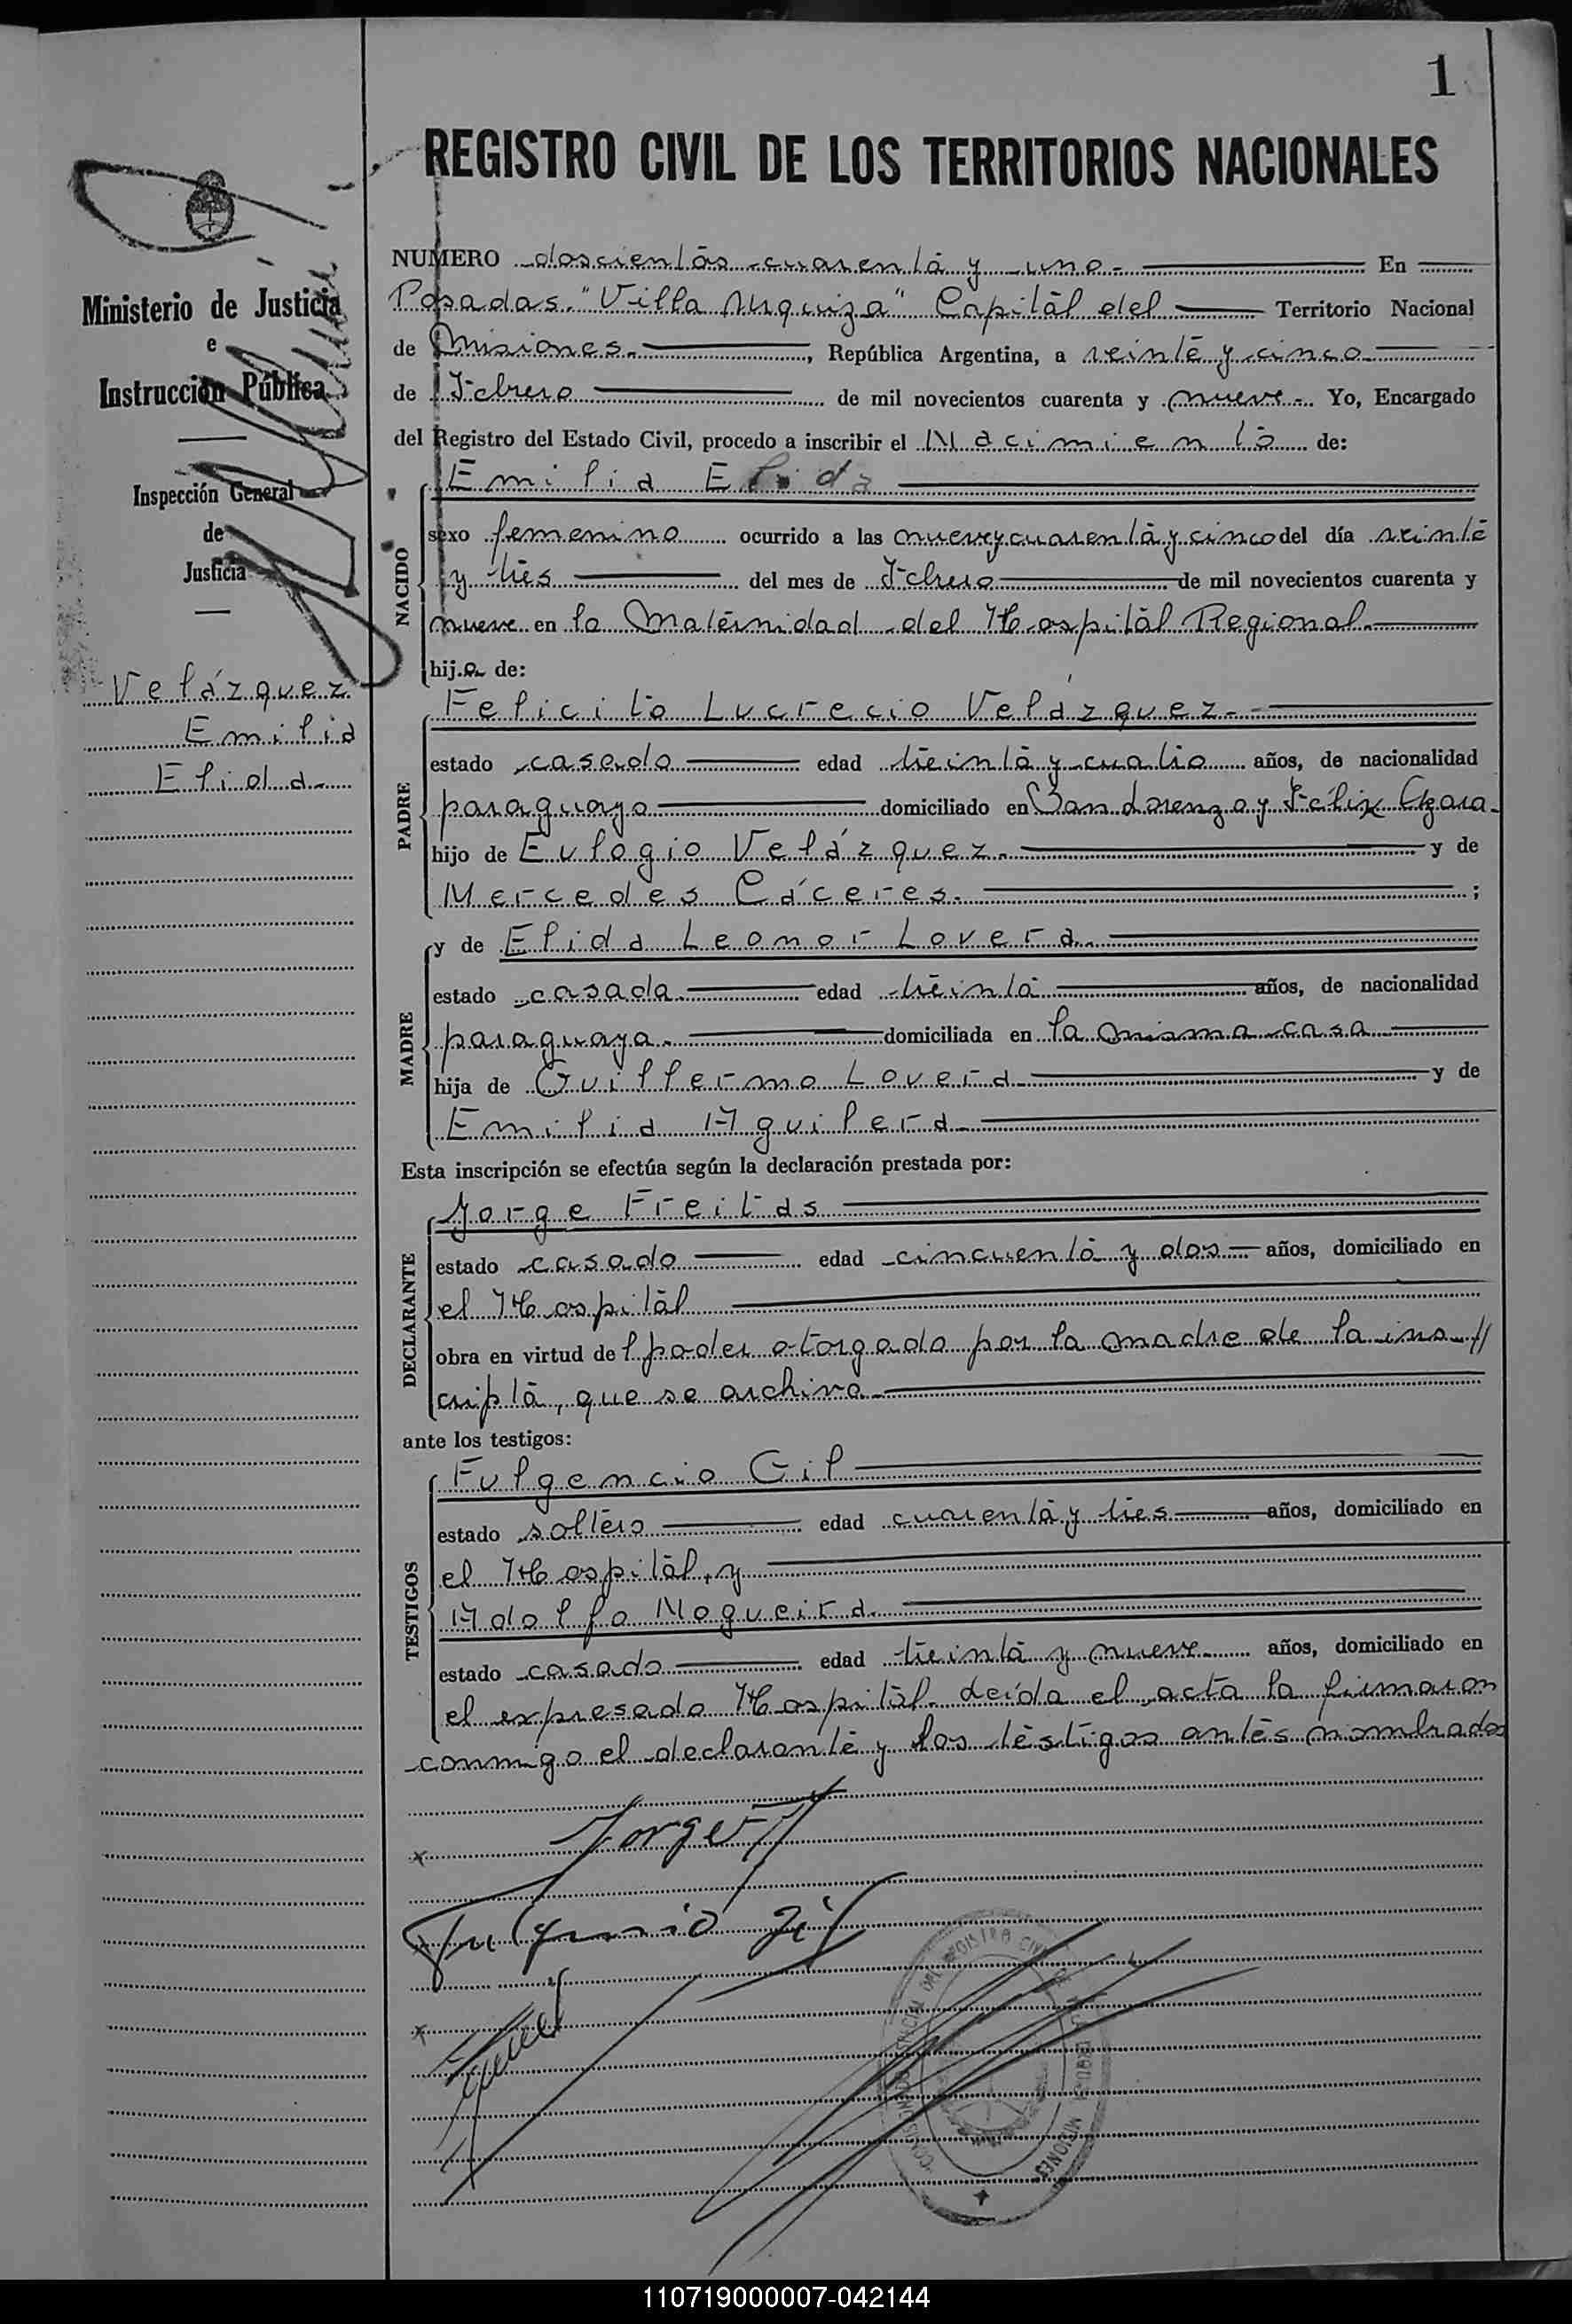 1
REGISTRO CIVIL DE LOS TERRITORIOS NACIONALES
Ministerio de Justicia
e
Instrucción Pública
Inspección General
de
Justicia
Velázquez
Emilia
Elida.-
NUMERO doscientos cuarenta y uno.- En
Posadas "Villa Urquiza" Capital del Territorio Nacional
de Misiones.-, República Argentina, a veinte y cinco
de Febrero de mil novecientos cuarenta y nueve.- Yo, Encargado
del Registro del Estado Civil, procedo a inscribir el Nacimiento de:
NACIDO
Emilia Elida
sexo femenino ocurrido a las nueve y cuarenta y cinco del día veinte
y tres del mes de Febrero de mil novecientos cuarenta y
nueve en la Maternidad del Hospital Regional.-
hija de:
PADRE
Felicito Lucrecio Velázquez.-
estado casado edad treinta y cuatro años, de nacionalidad
paraguayo domiciliado en San Lorenzo y Félix Azara-
hijo de Eulogio Velázquez.- y de
Mercedes Cáceres.- ;
MADRE
y de Elida Leonor Lovera.-
estado casada.- edad treinta años, de nacionalidad
paraguaya.- domiciliada en la misma casa
hija de Guillermo Lovera- y de
Emilia Aguilera-
Esta inscripción se efectúa según la declaración prestada por:
DECLARANTE
Jorge Freitas
estado casado edad cincuenta y dos- años, domiciliado en
el Hospital
obra en virtud del poder otorgado por la madre de la ins-//
cripta, que se archiva-
ante los testigos:
TESTIGOS
Fulgencio Gil
estado soltero edad cuarenta y tres años, domiciliado en
el Hospital, y
Adolfo Nogueira.
estado casado edad treinta y nueve años, domiciliado en
el expresado Hospital. Leída el acta la firmaron
conmigo el declarante y los testigos antes nombrados
x Jorge F
Fulgencio Gil
x
REGISTRO CIVIL
MISIONES
110719000007-042144